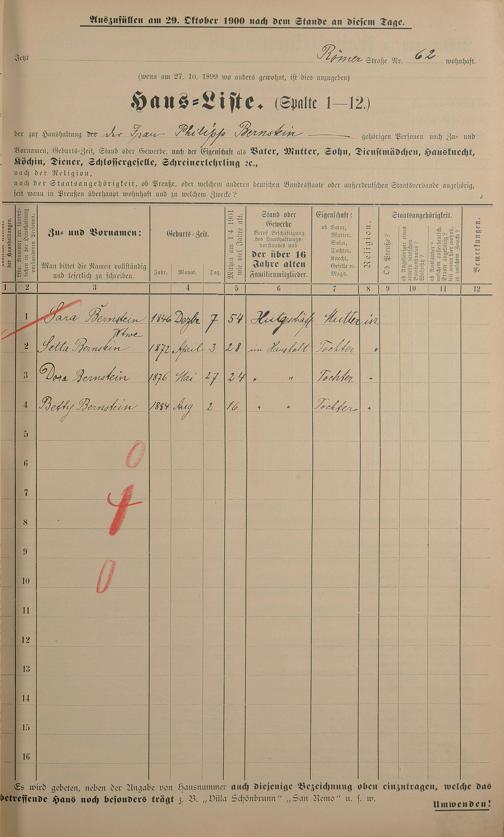 Auszufüllen am 29. Oktober 1900 nach dem Stande an diesem Tage.
Jetzt Römer Straße Nr. 62 wohnhaft.
(wenn am 27. 10. 1899 wo anders gewohnt, ist dies anzugeben)
Haus-Liste. (Spalte 1—12.)
der zur Haushaltung der der Frau Philipp Bernstein gehörigen Personen nach Zu- und
Vornamen, Geburts-Zeit, Stand oder Gewerbe, nach der Eigenschaft als Vater, Mutter, Sohn, Dienstmädchen, Hausknecht,
Köchin, Diener, Schlossergeselle, Schreinerlehrling ꝛc.,
nach der Religion,
nach der Staatsangehörigkeit, ob Preuße, oder welchem anderen deutschen Bundesstaate oder außerdeutschen Staatsverbande angehörig,
seit wann in Preußen überhaupt wohnhaft und zu welchem Zwecke?
Zu- und Vornamen:
Man bittet die Namen vollständig
und leserlich zu schreiben.
Geburts-Zeit.
Jahr. Monat. Tag.
Mithin am 1 4 1901
wie viel Jahre alt.
Stand oder
Gewerbe
der über 16
Jahre alten
Familienmitglieder.
Eigenschaft:
ob Vater,
Mutter,
Sohn,
Tochter,
Knecht,
Geselle w.
Magd.
Religion.
Staatsangehörigkeit.
Ob Preuße?
Bemerkungen.
1 2 3 4 5 6 7 8 9 10 11 12
1 Sara Bernstein 1846 Dezbr 7 54 Mutter isr
Wtwe
2 Bernstein 1872 April 3 28 im Haushalt Tochter "
3 Dora Bernstein 1876 Mai 27 24 " " Tochter "
4 Betty Bernstein 1884 Aug 2 16 " " Tochter "
5
6 0
7
8 4
9
10 0
11
12
13
14
15
16
Es wird gebeten, neben der Angabe von Hausnummer auch diejenige Bezeichnung oben einzutragen, welche das
betreffende Haus noch besonders trägt z. B. „Villa Schönbrunn" „San Remo" u. s. w.
Umwenden!